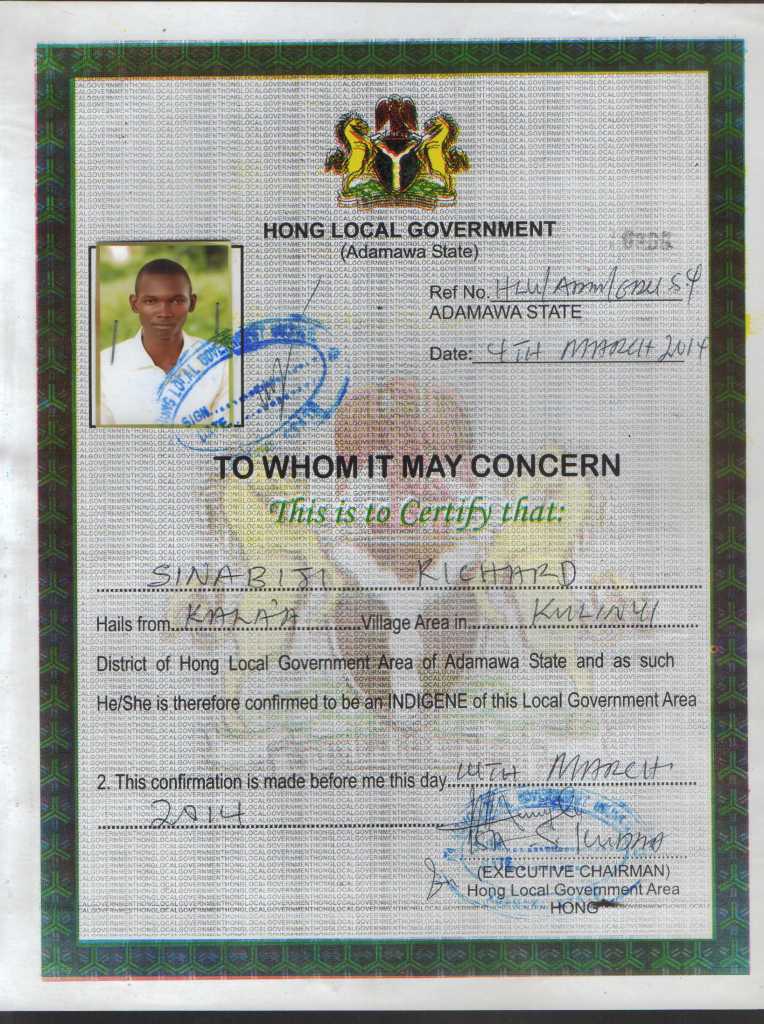 HONG LOCAL GOVERNMENT
(Adamawa State)
Ref No. HLG/ADM/
ADAMAWA STATE
Date: 4TH MARCH 2014
LOCAL GOVERNMENT
SIGN
DATE
TO WHOM IT MAY CONCERN
This is to Certify that:
SINABIJI RICHARD
Hails from KALA'A Village Area in KULINYI
District of Hong Local Government Area of Adamawa State and as such
He/She is therefore confirmed to be an INDIGENE of this Local Government Area
2. This confirmation is made before me this day 14TH MARCH
2014
(EXECUTIVE CHAIRMAN)
Hong Local Government Area
HONG